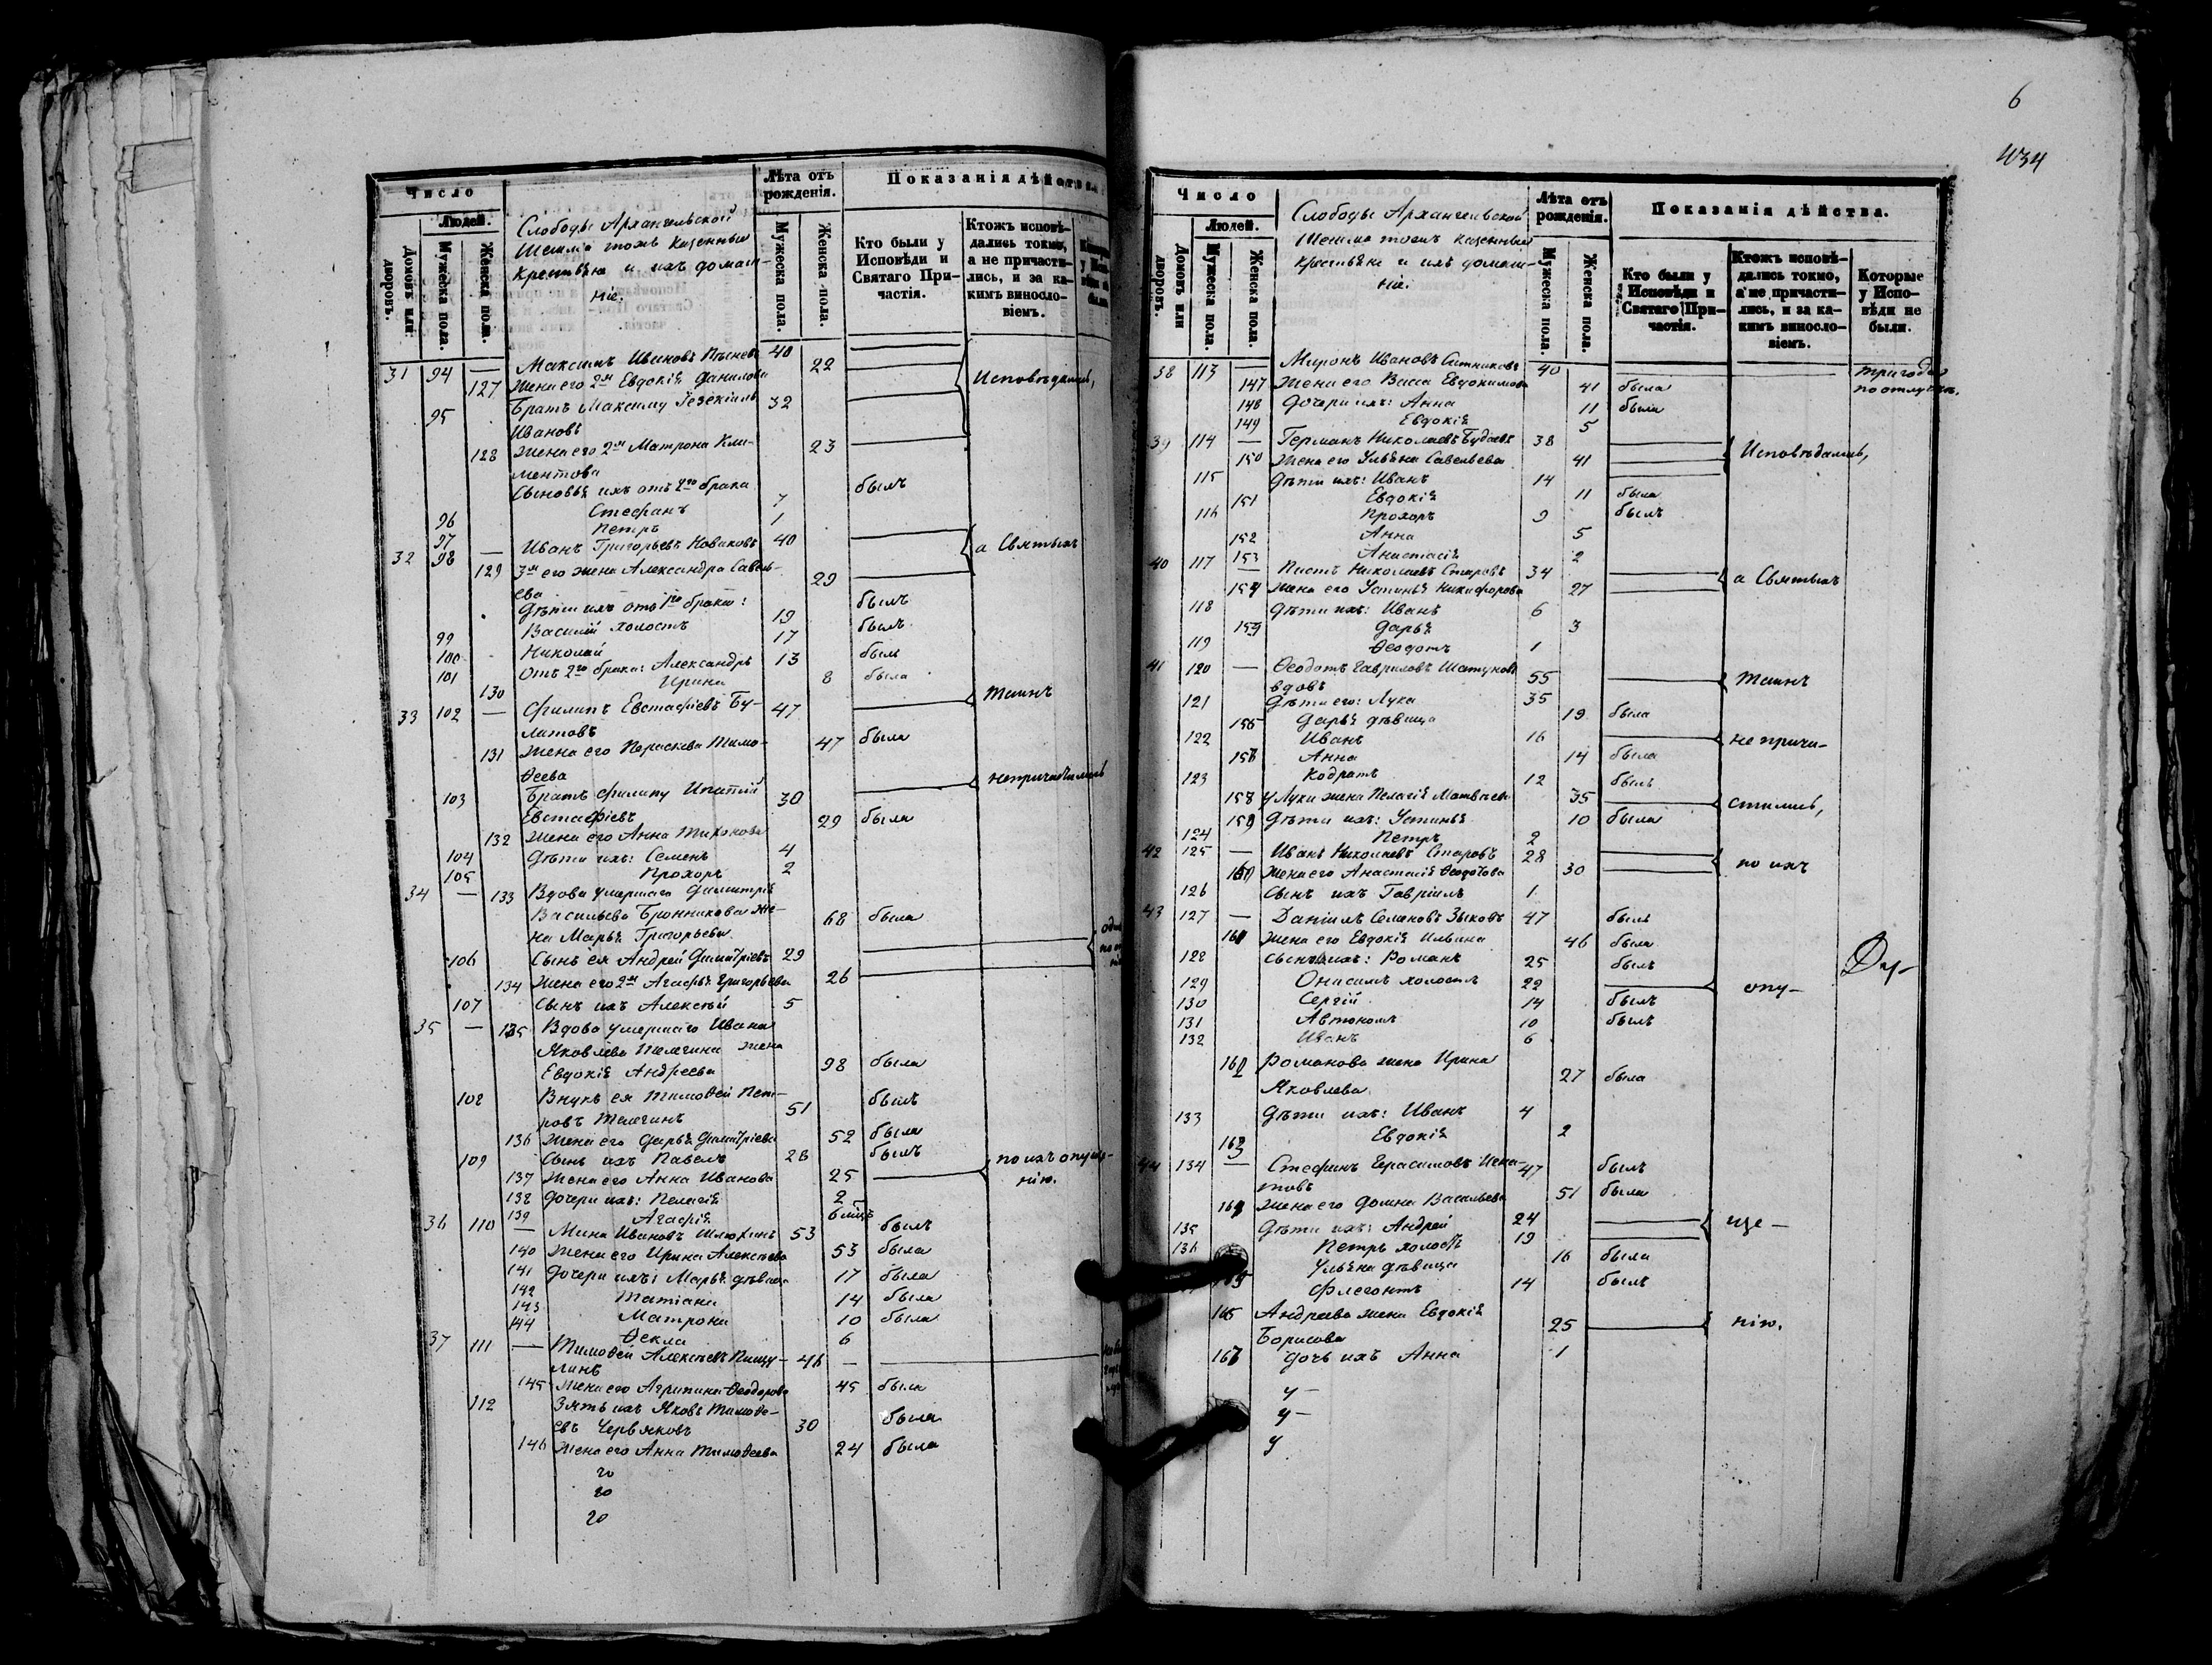 Число
Людей.
Домовъ или дворовъ.
Мужеска пола.
Женска пола.
Слободы Архангельской
Крестьяне и ихъ домаш-
ніе.
Лѣта отъ рожденія.
Мужеска пола.
Женска пола.
Показанія дѣйства
Кто были у Исповѣди и Святаго Причастія.
Ктожъ исповѣ-
дались токмо,
а не причасти-
лись, и за ка-
кимъ винословіемъ.
31 94 — Максимъ Ивановъ 40
127 Жена его 2ая Евдокія Данилова 22 Исповѣдались,
95 Братъ Максиму Іезекіиль 32
Ивановъ
128 Жена его 2ая Матрона Кли- 23
ментова
Сыновья ихъ отъ 2го брака
96 Стефанъ 7 былъ
97 Петръ 1
32 98 — Иванъ Григорьевъ Новиковъ 40 а Святыхъ
129 3я его жена Александра Савель- 29
ева
Дѣти ихъ отъ 1го брака:
99 Василій холостъ 19 былъ
100 Николай 17 былъ
101 Отъ 2го брака: Александръ 13 былъ
130 Ирина 8 была
33 102 — Филипъ Евстафіевъ Бу- 47 Таинъ
латовъ
131 Жена его Пераскева Тимо- 47 была
ѳеева
103 Братъ Филипу Ипатій 30 непричастились
Евстафіевъ
132 Жена его Анна Тихонова 29 была
104 Дѣти ихъ: Семенъ 4
105 Прохоръ 2
34 — 133 Вдова умершаго Димитрія
Васильева Бронникова же- 68 была
на Марья Григорьева
106 Сынъ ея Андрей Димитріевъ 29
134 Жена его 2ая Агафья Григорьева 26
107 Сынъ ихъ Алексѣй 5
35 — 135 Вдова умершаго Ивана
Яковлева Телегина жена
Евдокія Андреева 98 была
108 Внукъ ея Тимоѳей Пет- 51 былъ
ровъ Телегинъ
136 Жена его Дарья Димитріева 52 была
109 Сынъ ихъ Павелъ 28 былъ
137 Жена его Анна Иванова 25 по ихъ опуще-
нію.
138 Дочери ихъ: Пелагія 2
139 Агафія 6 мцъ
36 110 — Мина Ивановъ 53 былъ
140 Жена его Ирина Алексѣева 53 была
141 Дочери ихъ: Марья дѣвица 17 была
142 Татіана 14 была
143 Матрона 10 была
144 Ѳекла 6
37 111 — Тимоѳей Алексѣевъ Пищу- 46
линъ
145 Жена его Агрипина Ѳеодорова 45 была
112 Зять ихъ Яковъ Тимоѳе- 30
евъ Червяковъ
146 Жена его Анна Тимоѳеева 24 была
6
434
Число
Людей.
Домовъ или дворовъ.
Мужеска пола.
Женска пола.
Слободы Архангельской
Крестьяне и ихъ домаш-
ніе.
Лѣта отъ рожденія.
Мужеска пола.
Женска пола.
Показанія дѣйства.
Кто были у Исповѣди и Святаго Причастія.
Ктожъ исповѣ-
дались токмо,
а не причасти-
лись, и за ка-
кимъ винословіемъ.
Которые у Исповѣди не были.
38 113 — Миронъ Ивановъ Ситниковъ 40 три года
по отлучкѣ.
147 Жена его Васса Евдокимова 41 была
148 Дочери ихъ: Анна 11 была
149 Евдокія 5
39 114 — Германъ Николаевъ 38 Исповѣдались,
150 Жена его Ульяна Савельева 41
115 Дѣти ихъ: Иванъ 14
151 Евдокія 11 была
116 Прохоръ 9 былъ
152 Анна 5
153 Анастасія 2
40 117 — Пистъ Николаевъ Старовъ 34 а Святыхъ
154 Жена его Устинья Никифорова 27
118 Дѣти ихъ: Иванъ 6
Дарья 3
119 Ѳеодотъ 1
41 120 — Ѳеодотъ Гавриловъ Шатуновъ 55 Таинъ
вдовъ
121 Дѣти его: Лука 35
156 Дарья дѣвица 19 была
122 Иванъ 16 не прича-
Анна 14 была
123 Кодратъ 12 былъ
158 у Луки жена Пелагія Матвѣева 35 стились,
159 Дѣти ихъ: Устинья 10 была
124 Петръ 2
42 125 — Иванъ Николаевъ Старовъ 28 по ихъ
Жена его Анастасія Ѳеодотова 30
126 Сынъ ихъ Гавріилъ 1
43 127 — Даніилъ Семеновъ Зыковъ 47 былъ
Жена его Евдокія Ильина 46 была
128 Сыновья ихъ: Романъ 25 былъ
129 Онисимъ холостъ 22 опу-
130 Сергій 14 былъ
131 Автономъ 10 былъ
132 Иванъ 6
Романова жена Ирина
Яковлева 27 была
133 Дѣти ихъ: Иванъ 4
Евдокія 2
44 134 — Стефанъ Герасимовъ 47 былъ
Жена его Домна Васильева 51 была
135 Дѣти ихъ: Андрей 24 ще-
136 Петръ холостъ 19
Ульяна дѣвица 16 была
Флегонтъ 14 былъ
Андреева жена Евдокія
Борисова 25 нію.
дочь ихъ Анна 1